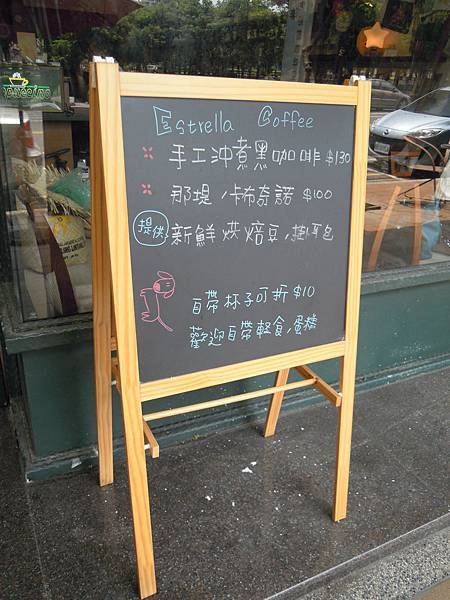 Estrella Coffee
手工沖煮黑咖啡 $130
那堤/卡布奇諾 $100
提供 新鮮烘焙豆/掛耳包
自帶杯子可折 $10
歡迎自帶輕食/蛋糕